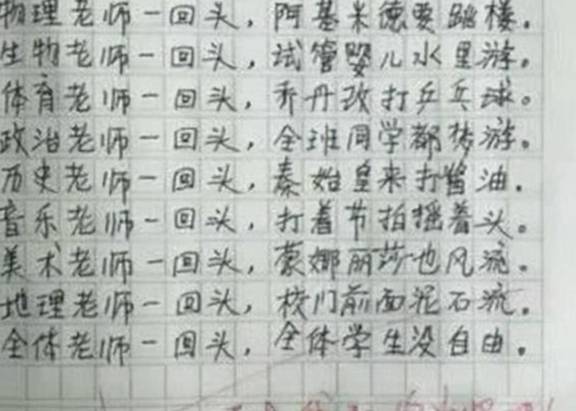 物理老师一回头,阿基米德要跳楼.
生物老师一回头,试管婴儿水里游.
体育老师一回头,乔丹改打乒乓球。
政治老师一回头,全班同学都梦游。
历史老师一回头,秦始皇来打酱油.
音乐老师一回头,打着节拍摇着头。
美术老师一回头,蒙娜丽莎也风流.
地理老师一回头,校门前面泥石流.
全体老师一回头,全体学生没自由.